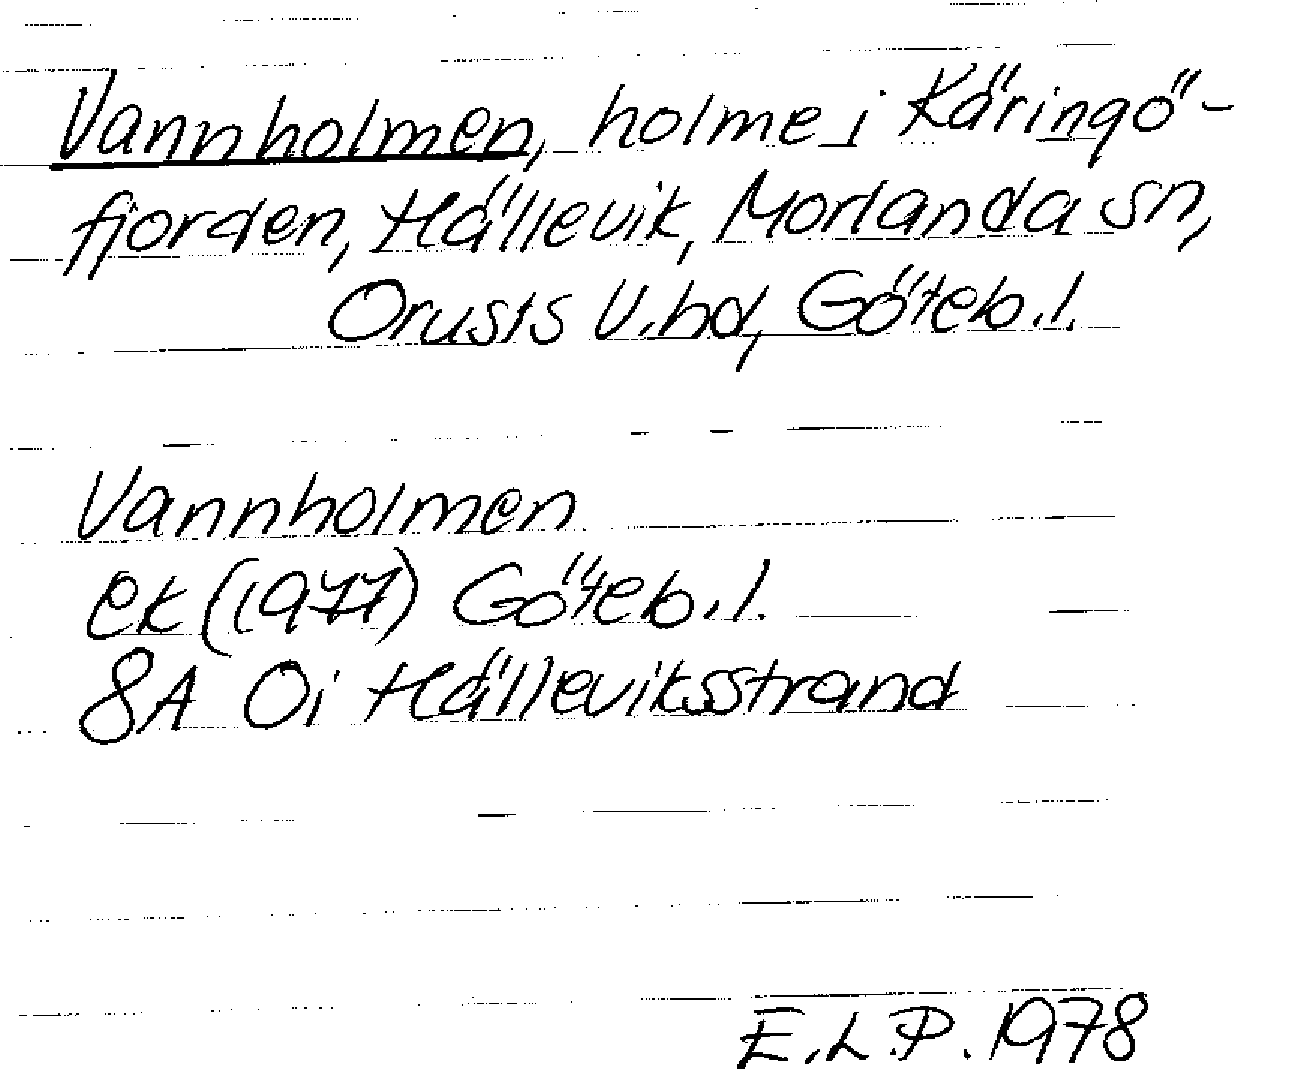 Vannholmen, holme i Käringö-
fjorden, Hällevik, Morlanda sn,
Orusts V.hd, Göteb.l.
Vannholmen
ek (1977) Göteb.l.
8A 0i Hälleviksstrand
E.L.P. 1978